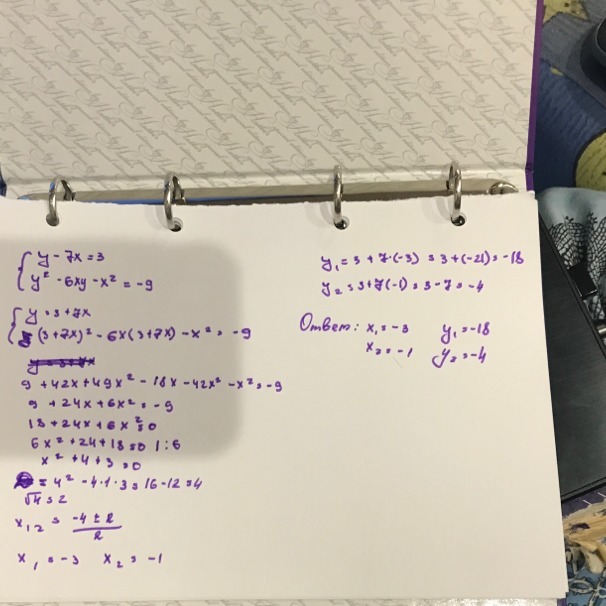 y - 7x = 3
y² - 6xy - x² = -9
y = 3 + 7x
(3+7x)² - 6x(3+7x) - x² = -9
y = 3 + 7x
9 + 42x + 49x² - 18x - 42x² - x² = -9
9 + 24x + 6x² = -9
18 + 24x + 6x² = 0
6x² + 24 + 18 = 0 | : 6
x² + 4 + 3 = 0
= 4² - 4·1·3 = 16 - 12 = 4
√4 = 2
x₁,₂ = (-4 ± 2)/2
x₁ = -3 x₂ = -1
y₁ = 3 + 7·(-3) = 3 + (-21) = -18
y₂ = 3 + 7(-1) = 3 - 7 = -4
Ответ: x₁ = -3 y₁ = -18
x₂ = -1 y₂ = -4